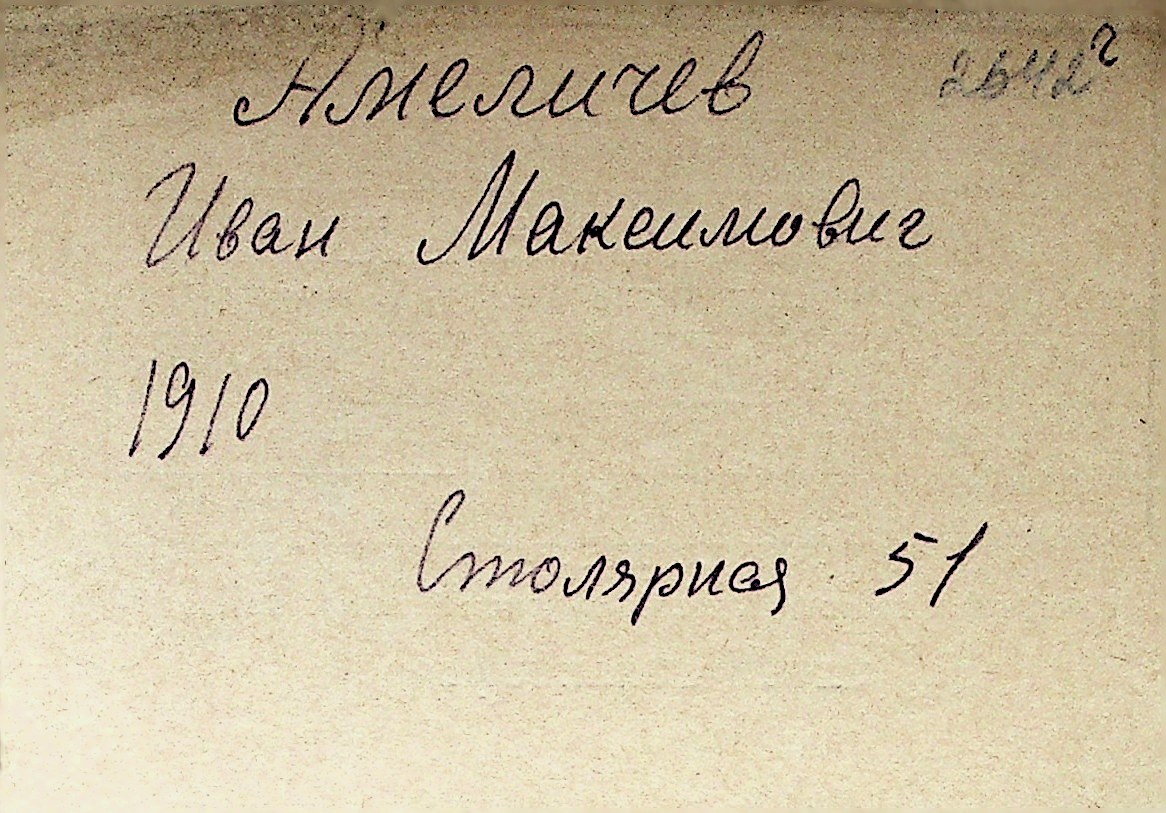 Амеличев 2642г
Иван Максимович
1910
Столярная 51